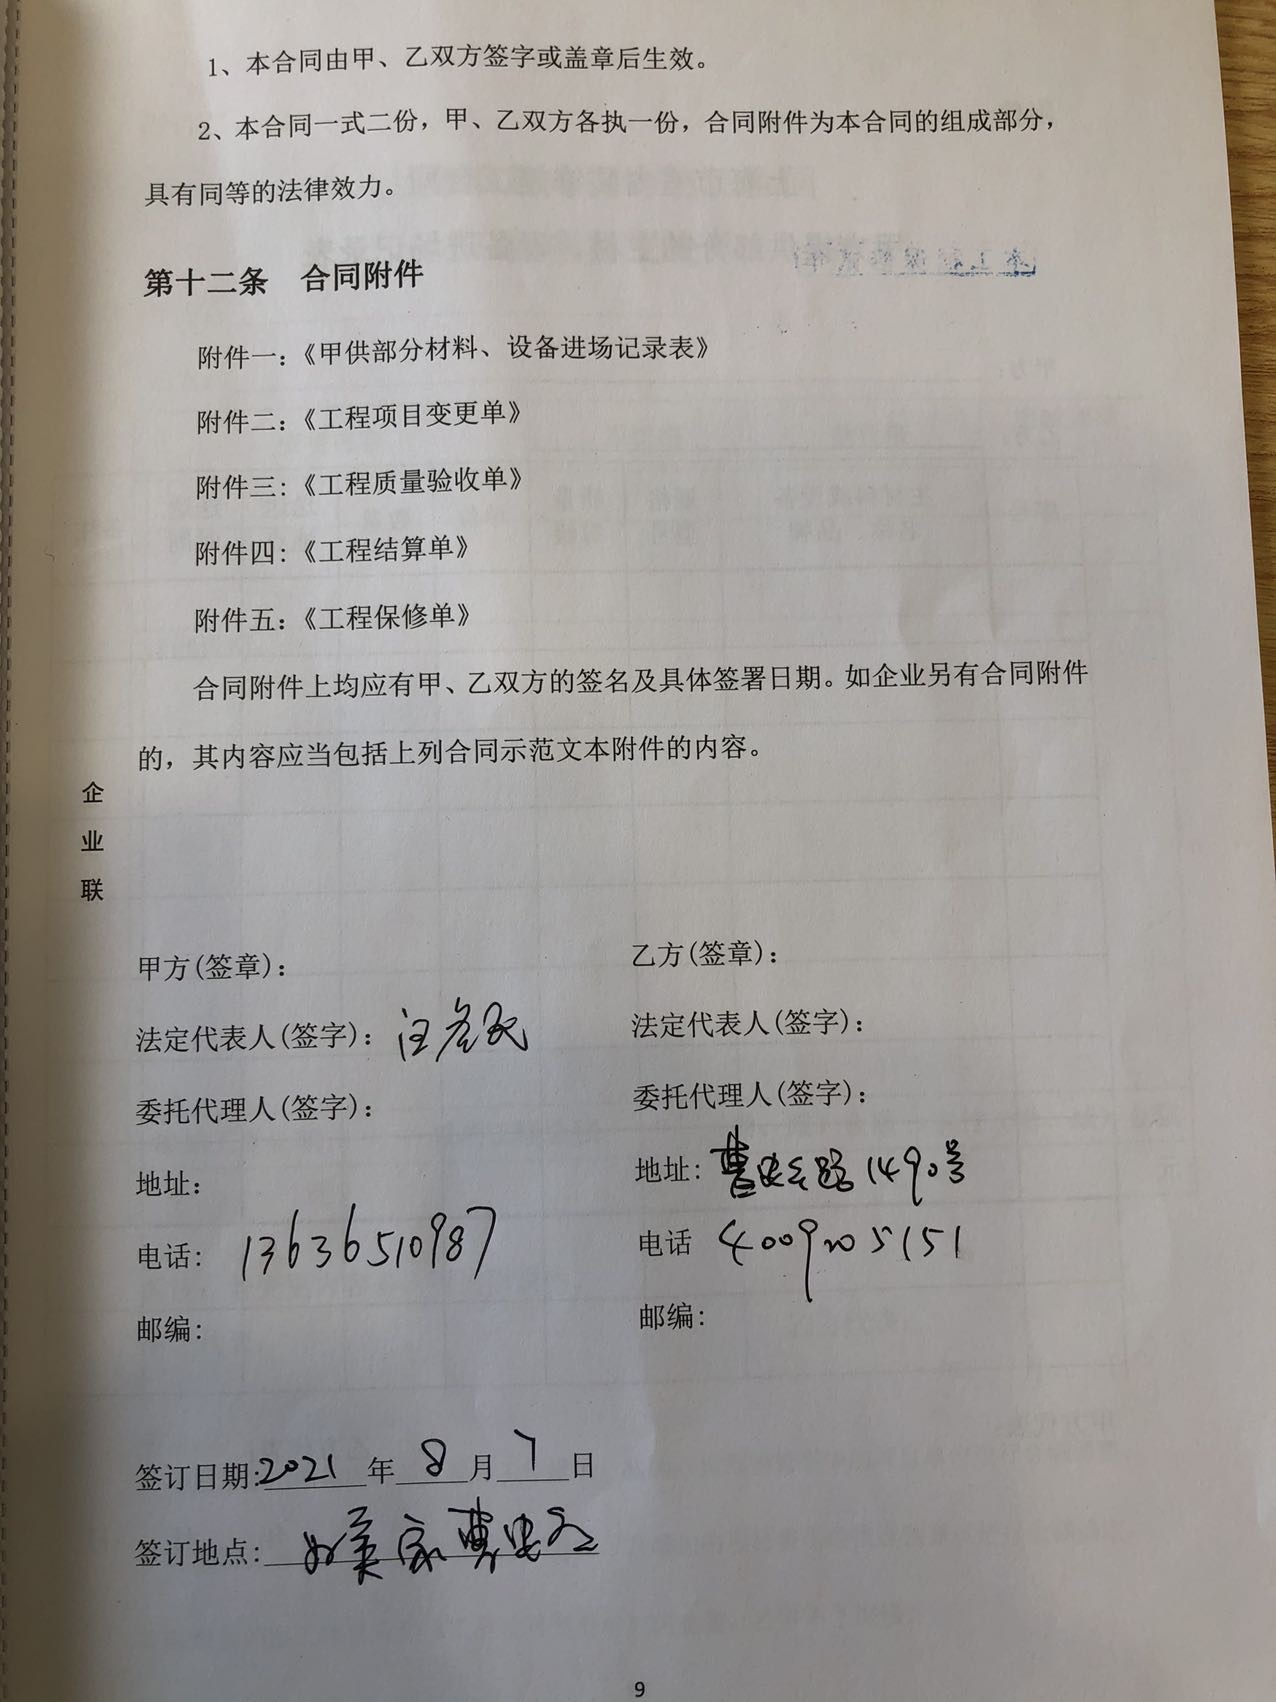 1、本合同由甲、乙双方签字或盖章后生效。
2、本合同一式二份，甲、乙双方各执一份，合同附件为本合同的组成部分，
具有同等的法律效力。
第十二条 合同附件
附件一：《甲供部分材料、设备进场记录表》
附件二：《工程项目变更单》
附件三：《工程质量验收单》
附件四：《工程结算单》
附件五：《工程保修单》
合同附件上均应有甲、乙双方的签名及具体签署日期。如企业另有合同附件
的，其内容应当包括上列合同示范文本附件的内容。
企
业
联
甲方(签章)：
法定代表人(签字)：汪
委托代理人(签字)：
地址：
电话：13636510987
邮编：
乙方(签章)：
法定代表人(签字)：
委托代理人(签字)：
地址：曹安路1490号
电话 4009205151
邮编：
签订日期:2021年8月7日
签订地点:家曹安
9